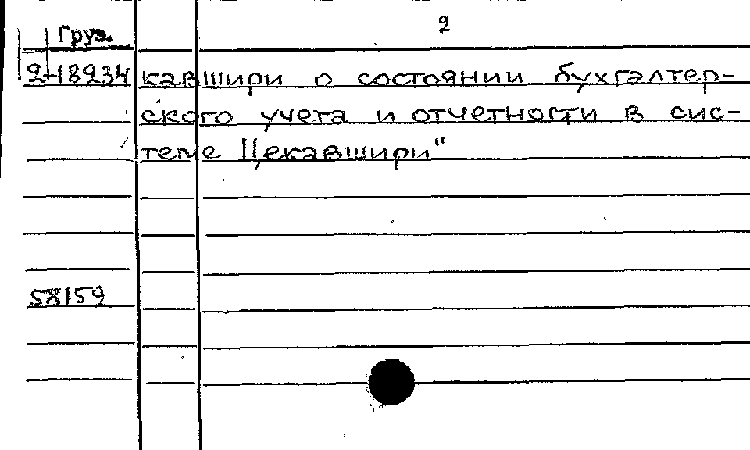 2
Груз.
2-18234 кавшири о состоянии бухгалтер-
ского учета и отчетности в сис-
теме Цекавшири"
58159